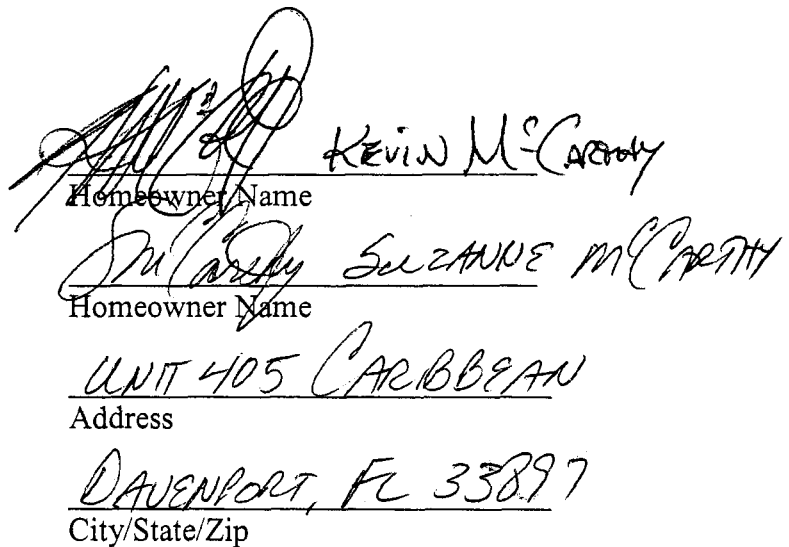 Kevin McCarthy
Homeowner Name
SMcCarthy Suzanne McCarthy
Homeowner Name
UNIT 405 CARIBBEAN
Address
DAVENPORT, FL 33897
City/State/Zip